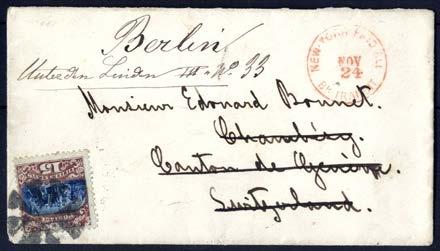 Berlin
Unter den Linden No. 33
NEW-YORK PAID ALL
NOV
24
Monsieur Edouard Bonnet.
Chambésy.
Canton de Genève.
Switzerland.
15